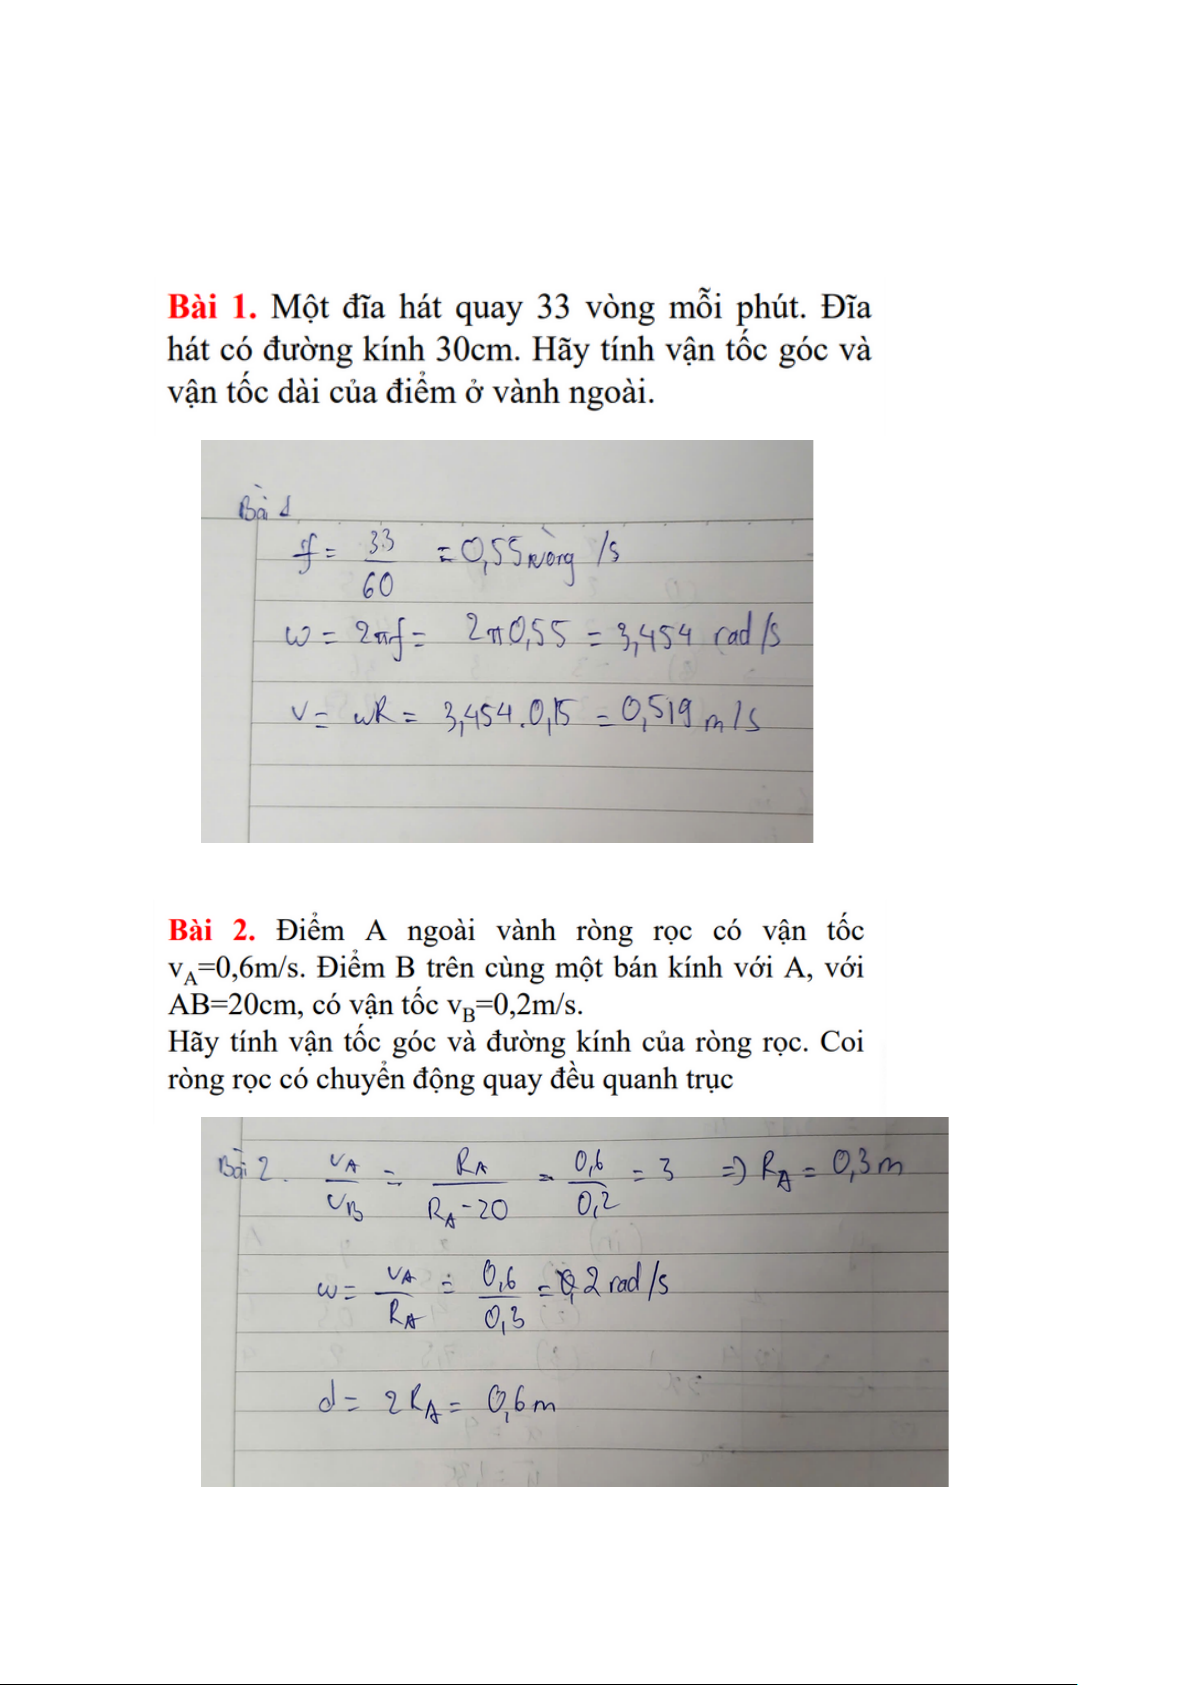 Bài 1. Một đĩa hát quay 33 vòng mỗi phút. Đĩa
hát có đường kính 30cm. Hãy tính vận tốc góc và
vận tốc dài của điểm ở vành ngoài.
Bài 1
f = 33/60 = 0,55 vòng/s
ω = 2πf = 2π0,55 = 3,454 rad/s
v = ωR = 3,454.0,15 = 0,519 m/s
Bài 2. Điểm A ngoài vành ròng rọc có vận tốc
vA=0,6m/s. Điểm B trên cùng một bán kính với A, với
AB=20cm, có vận tốc vB=0,2m/s.
Hãy tính vận tốc góc và đường kính của ròng rọc. Coi
ròng rọc có chuyển động quay đều quanh trục
Bài 2. vA/vB = RA/(RA-20) = 0,6/0,2 = 3 => RA = 0,3m
ω = vA/RA = 0,6/0,3 = 2 rad/s
d = 2RA = 0,6m